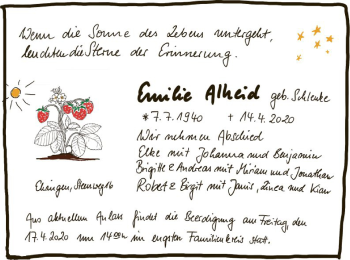 Wenn die Sonne des Lebens untergeht,
leuchten die Sterne der Erinnerung.
Emilie Alheid geb. Schlenke
*7.7.1940 + 14.4.2020
Wir nehmen Abschied
Elke mit Johanna und Benjamin
Brigitte & Andreas mit Miriam und Jonathan
Robert & Birgit mit Janis, Luca und Kian
Ehingen, Sternweg 16
Aus aktuellem Anlass findet die Beerdigung am Freitag, den
17.4.2020 um 14 00 im engsten Familienkreis statt.